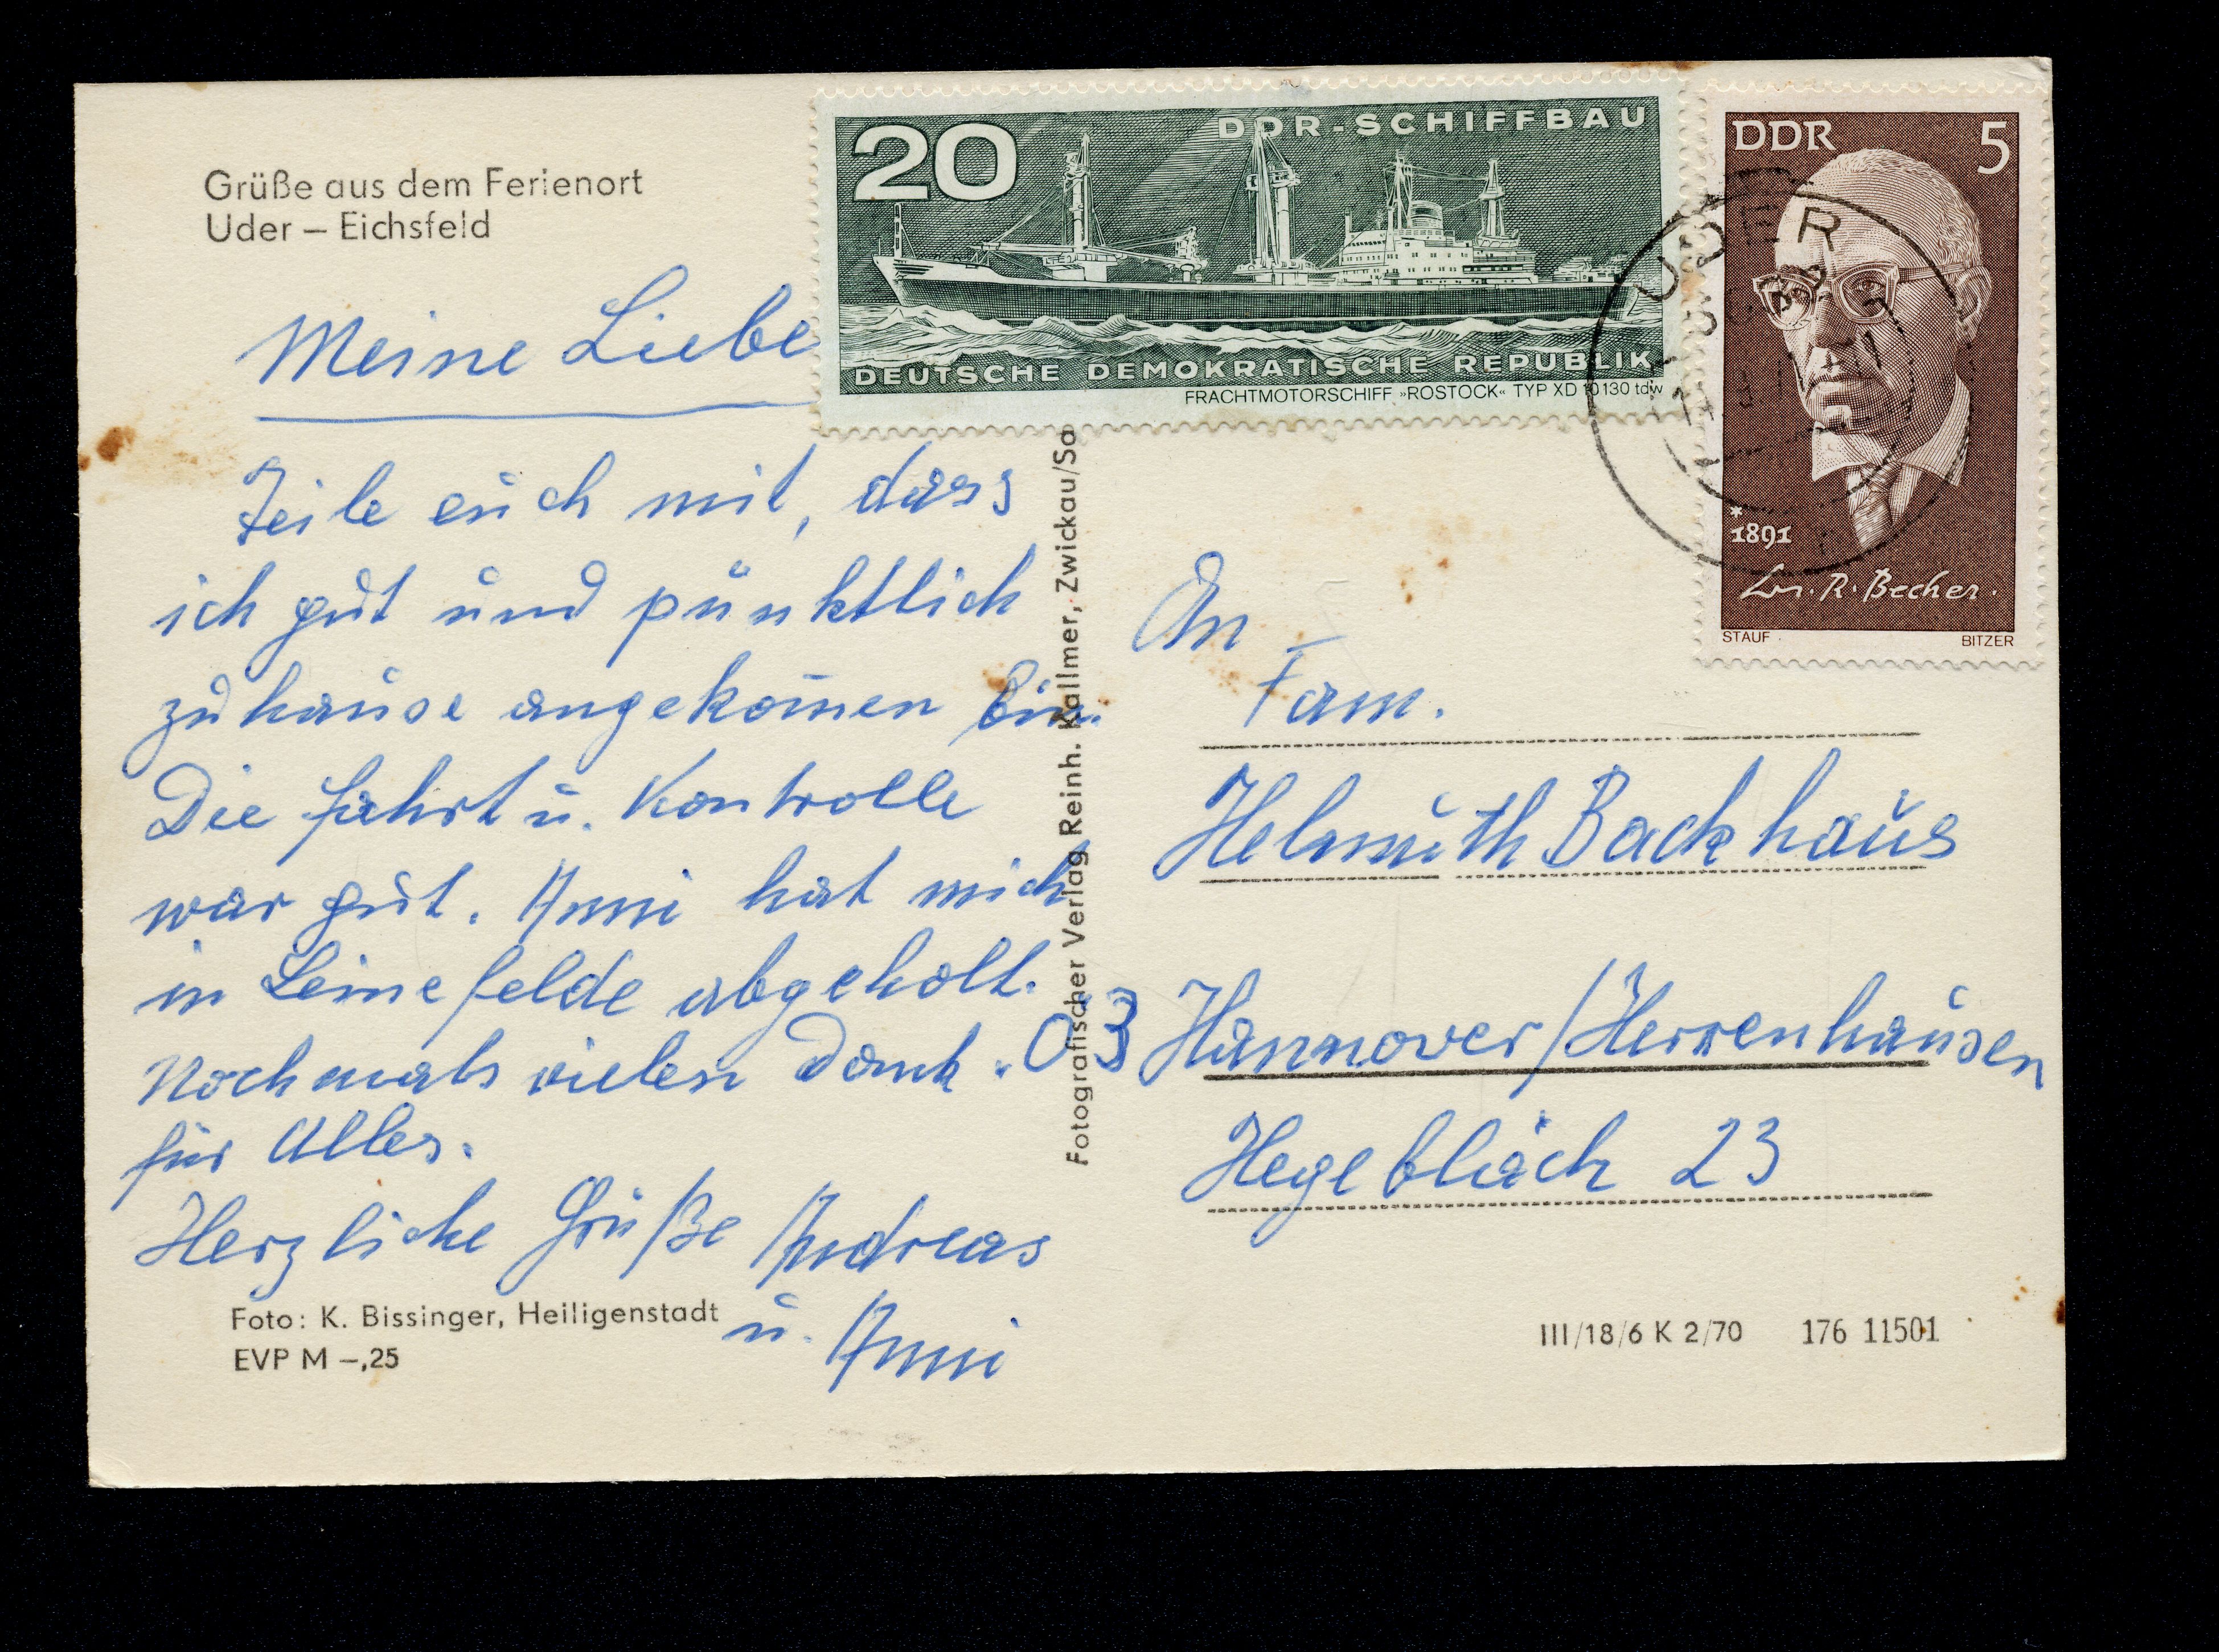 Grüße aus dem Ferienort
Uder – Eichsfeld
Meine Liebe
Teile euch mit, dass
ich gut und pünktlich
zuhause angekom̄en bin.
Die Fahrt u. Kontrolle
war gut. Anni hat mich
in Leinefelde abgeholt.
Nochmals vielen Dank.
für Alles.
Herzliche Grüße Andreas
u. Anni
Foto: K. Bissinger, Heiligenstadt
EVP M –,25
Fotografischer Verlag Reinh. Kallmer, Zwickau/Sa
20
DDR-SCHIFFBAU
DEUTSCHE DEMOKRATISCHE REPUBLIK
FRACHTMOTORSCHIFF »ROSTOCK« TYP XD 10130 tdw
DDR 5
* 1891
Joh. R. Becher.
STAUF BITZER
UDER
An
Fam.
Helmuth Backhaus
03 Hannover/Herrenhausen
Hegebläch 23
III/18/6 K 2/70 176 11501